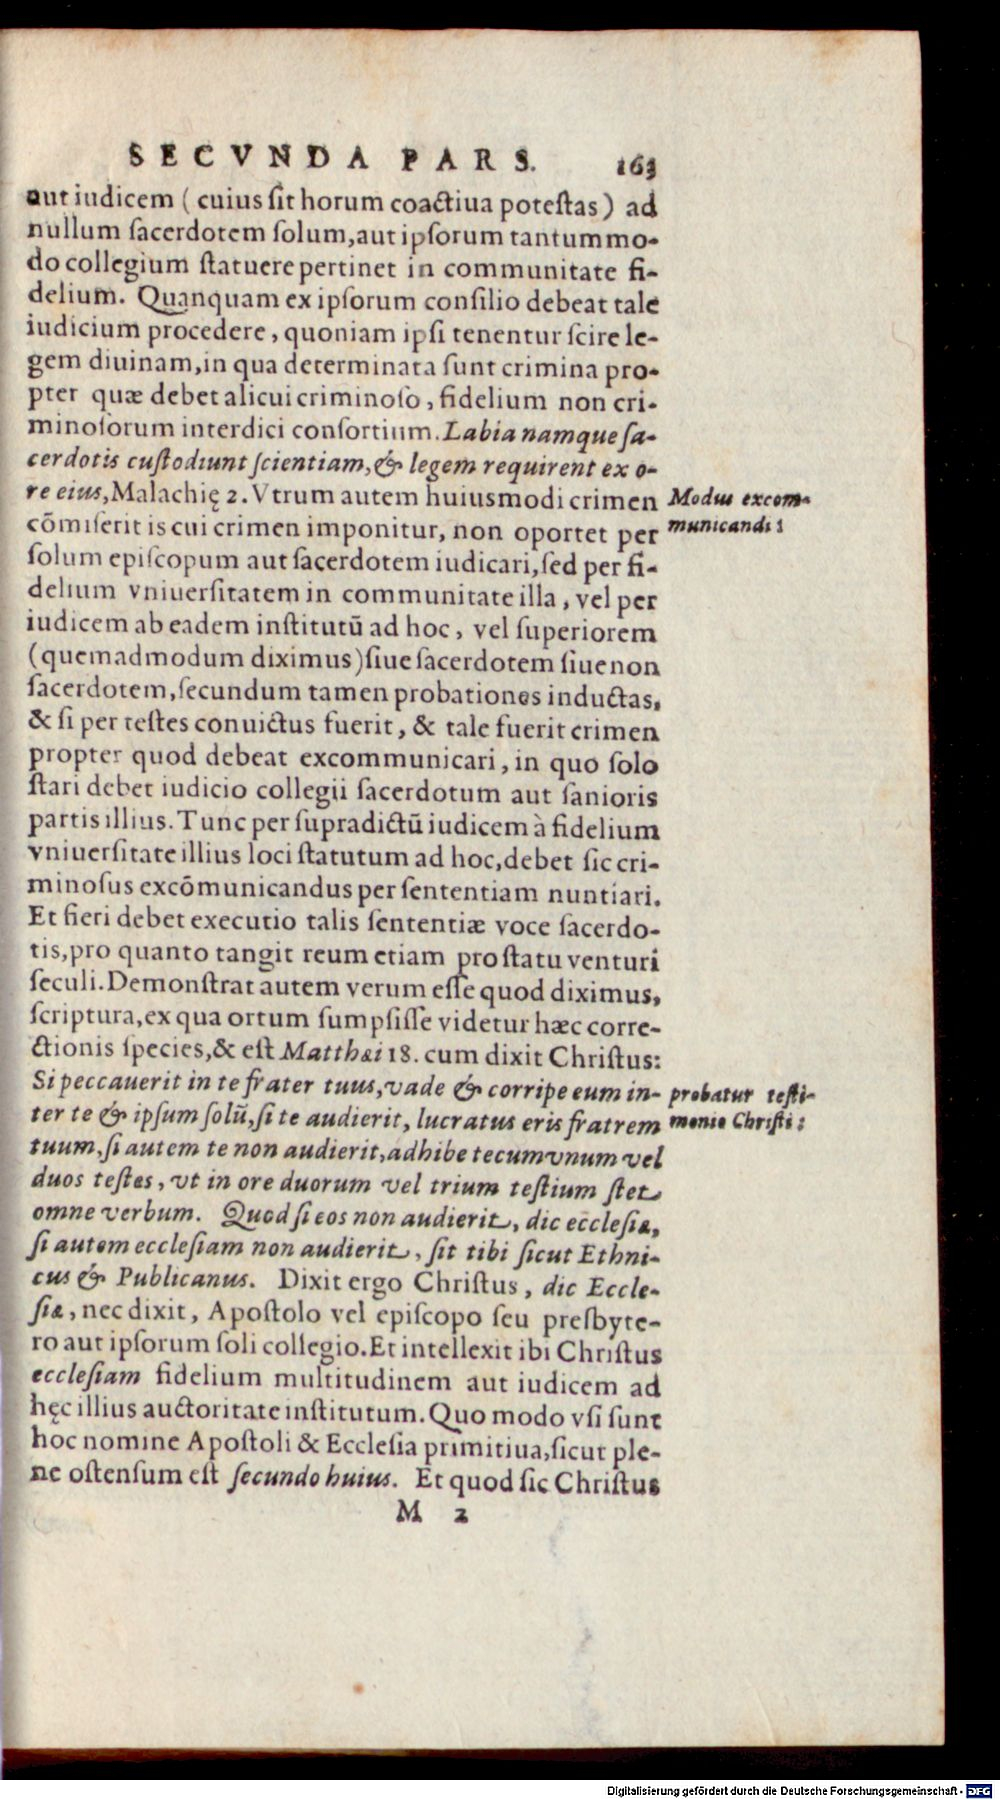 SECVNDA PARS. 163
aut iudicem ( cuius ſit horum coactiua poteſtas) ad
nullum ſacerdotem ſolum, aut ipſorum tantummo-
do collegium ſtatuere pertinet in communitate fi-
delium. Quanquam ex ipſorum conſilio debeat tale
iudicium procedere, quoniam ipſi tenentur ſcire le-
gem diuinam, in qua determinata ſunt crimina pro-
pter quæ debet alicui criminoſo, fidelium non cri-
minoſorum interdici conſortium. Labia namque ſa-
cerdotis cuſtodiunt ſcientiam, & legem requirent ex o-
re eius, Malachię 2. Vtrum autem huiusmodi crimen
Modus excom-
cōmiſerit is cui crimen imponitur, non oportet per
municandi:
ſolum epiſcopum aut ſacerdotem iudicari, ſed per fi-
delium vniuerſitatem in communitate illa, vel per
iudicem ab eadem inſtitutū ad hoc, vel ſuperiorem
(quemadmodum diximus) ſiue ſacerdotem ſiue non
ſacerdotem, ſecundum tamen probationes inductas,
& ſi per teſtes conuictus fuerit, & tale fuerit crimen
propter quod debeat excommunicari, in quo ſolo
ſtari debet iudicio collegii ſacerdotum aut ſanioris
partis illius. Tunc per ſupradictū iudicem à fidelium
vniuerſitate illius loci ſtatutum ad hoc, debet ſic cri-
minoſus excōmunicandus per ſententiam nuntiari.
Et fieri debet executio talis ſententiæ voce ſacerdo-
tis, pro quanto tangit reum etiam pro ſtatu venturi
ſeculi. Demonſtrat autem verum eſſe quod diximus,
ſcriptura, ex qua ortum ſumpſiſſe videtur hæc corre-
ctionis ſpecies, & eſt Matthæi 18. cum dixit Chriſtus:
Si peccauerit in te frater tuus, vade & corripe eum in-
probatur teſti-
ter te & ipſum ſolū, ſi te audierit, lucratus eris fratrem
monio Chriſti:
tuum, ſi autem te non audierit, adhibe tecum vnum vel
duos teſtes, vt in ore duorum vel trium teſtium ſtet
omne verbum. Quod ſi eos non audierit, dic eccleſiæ,
ſi autem eccleſiam non audierit, ſit tibi ſicut Ethni-
cus & Publicanus. Dixit ergo Chriſtus, dic Eccle-
ſiæ, nec dixit, Apoſtolo vel epiſcopo ſeu presbyte-
ro aut ipſorum ſoli collegio. Et intellexit ibi Chriſtus
eccleſiam fidelium multitudinem aut iudicem ad
hęc illius auctoritate inſtitutum. Quo modo vſi ſunt
hoc nomine Apoſtoli & Eccleſia primitiua, ſicut ple-
ne oſtenſum eſt ſecundo huius. Et quod ſic Chriſtus
M 2
Digitalisierung gefördert durch die Deutsche Forschungsgemeinschaft - DFG